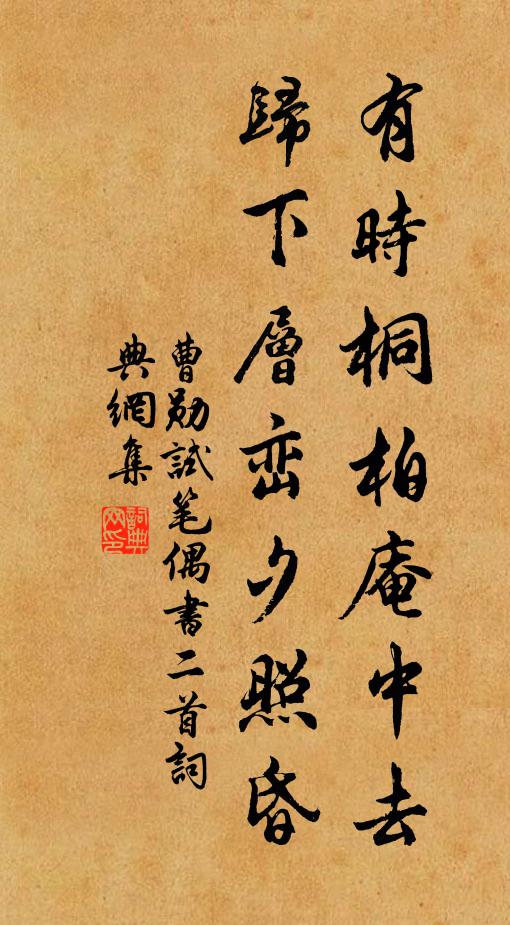 有時桐柏庵中去
歸下層峦夕照昏
曹勋試笔偶書二首詞
典網集
詞典网印